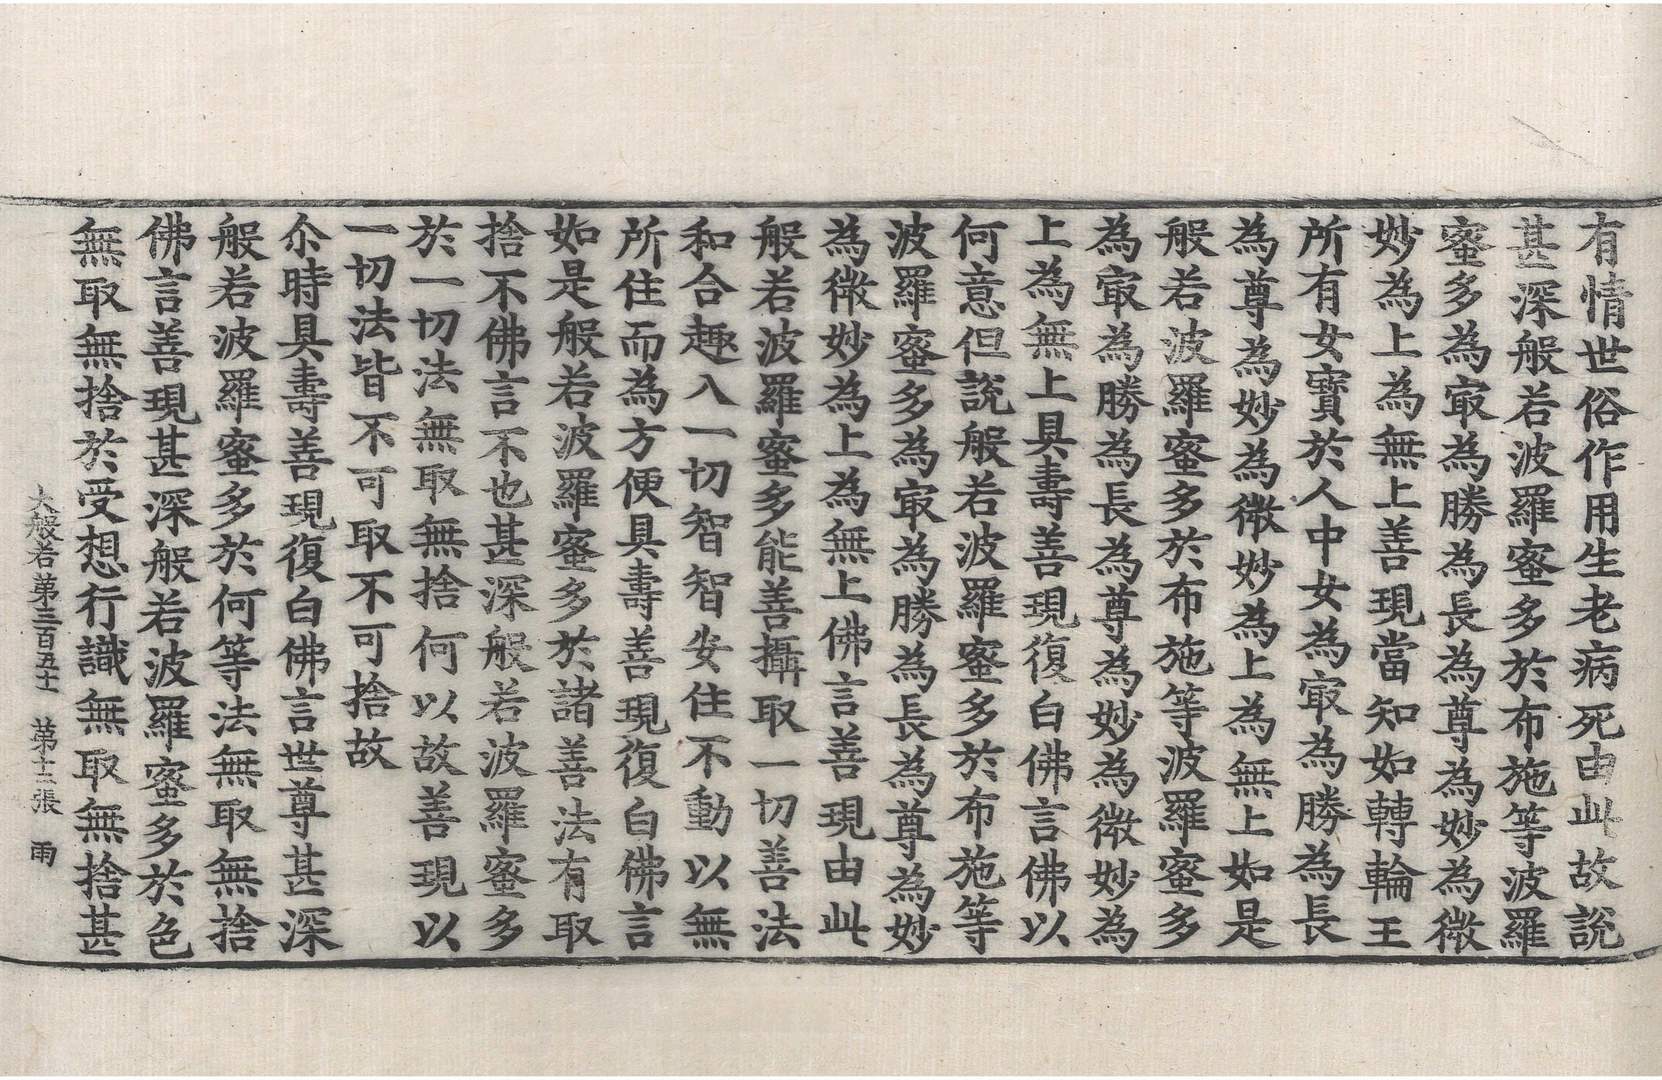 有情世俗作用生老病死由此故說
甚深般若波羅蜜多於布施等波羅
蜜多為㝡為勝為長為尊為妙為微
妙為上為無上善現當知如轉輪王
所有女寶於人中女為㝡為勝為長
為尊為妙為微妙為上為無上如是
般若波羅蜜多於布施等波羅蜜多
為㝡為勝為長為尊為妙為微妙為
上為無上具壽善現復白佛言佛以
何意但說般若波羅蜜多於布施等
波羅蜜多為㝡為勝為長為尊為妙
為微妙為上為無上佛言善現由此
般若波羅蜜多能善攝取一切善法
和合趣入一切智智安住不動以無
所住而為方便具壽善現復白佛言
如是般若波羅蜜多於諸善法有取
捨不佛言不也甚深般若波羅蜜多
於一切法無取無捨何以故善現以
一切法皆不可取不可捨故
尒時具壽善現復白佛言世尊甚深
般若波羅蜜多於何等法無取無捨
佛言善現甚深般若波羅蜜多於色
無取無捨於受想行識無取無捨甚
大般若第三百五十 第十二張 雨